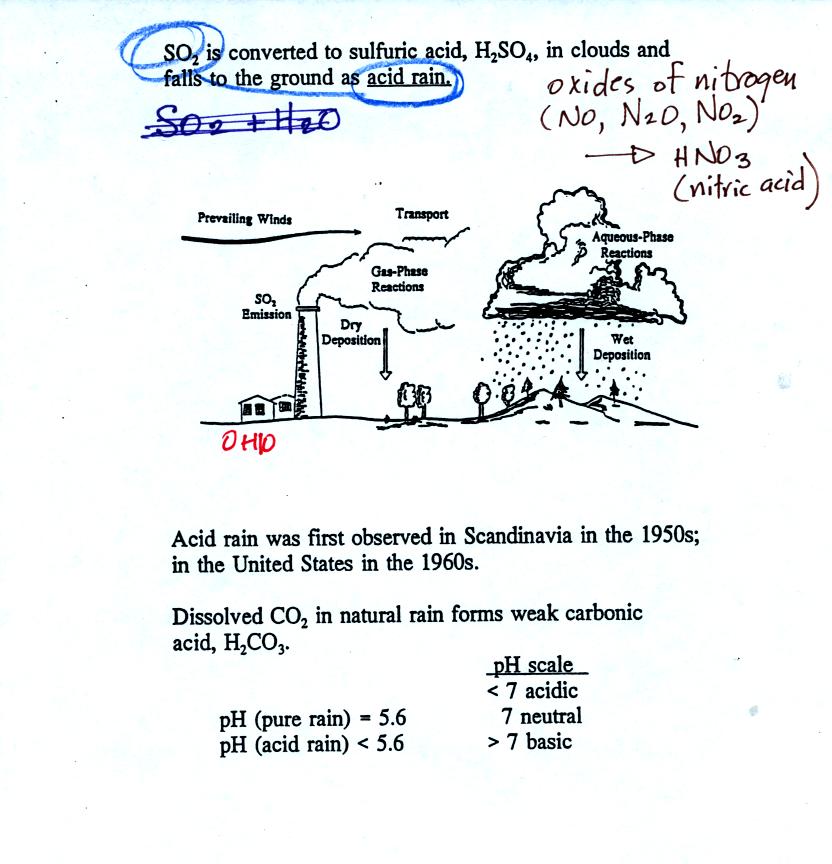 SO₂ is converted to sulfuric acid, H₂SO₄, in clouds and
falls to the ground as acid rain.
SO₂ + H₂O
oxides of nitrogen
(NO, N₂O, NO₂)
→ HNO₃
(nitric acid)
Prevailing Winds
Transport
Aqueous-Phase
Reactions
Gas-Phase
Reactions
SO₂
Emission
Dry
Deposition
Wet
Deposition
OHIO
Acid rain was first observed in Scandinavia in the 1950s;
in the United States in the 1960s.
Dissolved CO₂ in natural rain forms weak carbonic
acid, H₂CO₃.
pH scale
< 7 acidic
pH (pure rain) = 5.6 7 neutral
pH (acid rain) < 5.6 > 7 basic